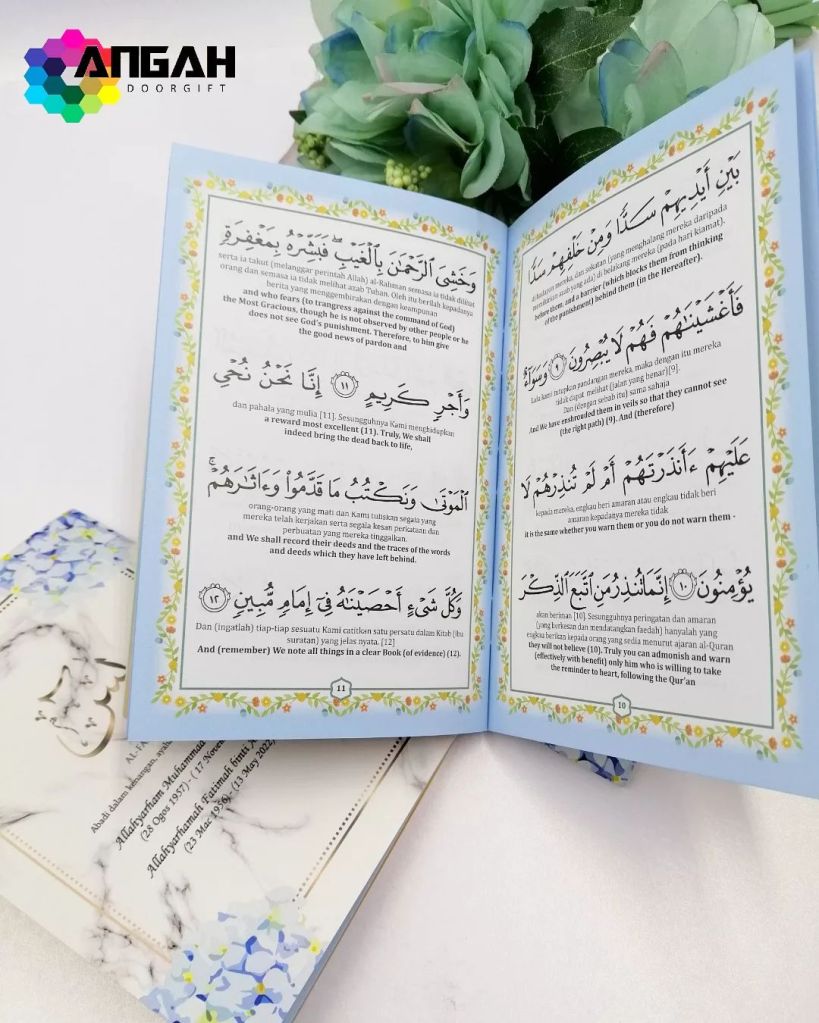 ANGAH
DOORGIFT
بَيْنِ أَيْدِيهِمْ سَدًّا وَمِنْ خَلْفِهِمْ سَدًّا
di hadapan mereka, dan sekatan (yang menghalang mereka daripada
memikirkan azab yang ada) di belakang mereka (pada hari kiamat).
before them, and a barrier (which blocks them from thinking
of the punishment) behind them (in the Hereafter).
فَأَغْشَيْنَٰهُمْ فَهُمْ لَا يُبْصِرُونَ ٩ وَسَوَآءٌ
Lalu kami tutupkan pandangan mereka, maka dengan itu mereka
tidak dapat melihat (jalan yang benar)[9].
Dan (dengan sebab itu) sama sahaja
And We have enshrouded them in veils so that they cannot see
(the right path) (9). And (therefore)
عَلَيْهِمْ ءَأَنذَرْتَهُمْ أَمْ لَمْ تُنذِرْهُمْ لَا
kepada mereka, engkau beri amaran atau engkau tidak beri
amaran kepadanya mereka tidak
it is the same whether you warn them or you do not warn them -
يُؤْمِنُونَ ١٠ إِنَّمَا تُنذِرُ مَنِ ٱتَّبَعَ ٱلذِّكْرَ
akan beriman [10]. Sesungguhnya peringatan dan amaran
(yang berkesan dan mendatangkan faedah) hanyalah yang
engkau berikan kepada orang yang sedia menurut ajaran al-Quran
they will not believe (10). Truly you can admonish and warn
(effectively with benefit) only him who is willing to take
the reminder to heart, following the Qur'an
10
وَخَشِىَ ٱلرَّحْمَٰنَ بِٱلْغَيْبِ ۖ فَبَشِّرْهُ بِمَغْفِرَةٍ
serta ia takut (melanggar perintah Allah) al-Rahman semasa ia tidak dilihat
orang dan semasa ia tidak melihat azab Tuhan. Oleh itu berilah kepadanya
berita yang menggembirakan dengan keampunan
and who fears (to trangress against the command of God)
the Most Gracious, though he is not observed by other people or he
does not see God's punishment. Therefore, to him give
the good news of pardon and
وَأَجْرٍ كَرِيمٍ ١١ إِنَّا نَحْنُ نُحْىِ
dan pahala yang mulia [11]. Sesungguhnya Kami menghidupkan
a reward most excellent (11). Truly, We shall
indeed bring the dead back to life,
ٱلْمَوْتَىٰ وَنَكْتُبُ مَا قَدَّمُوا۟ وَءَاثَٰرَهُمْ ۚ
orang-orang yang mati dan Kami tuliskan segala yang
mereka telah kerjakan serta segala kesan perkataan dan
perbuatan yang mereka tinggalkan.
and We shall record their deeds and the traces of the words
and deeds which they have left behind.
وَكُلَّ شَىْءٍ أَحْصَيْنَٰهُ فِىٓ إِمَامٍ مُّبِينٍ ١٢
Dan (ingatlah) tiap-tiap sesuatu Kami catitkan satu persatu dalam Kitab (ibu
suratan) yang jelas nyata. [12]
And (remember) We note all things in a clear Book (of evidence) (12).
11
يس
AL-FA
Abadi dalam kenangan, ayah
Allahyarham Muhammad
(28 Ogos 1957) - ( 17 Nove
Allahyarhamah Fatimah binti A
(23 Mac 1956) - (13 May 2022)